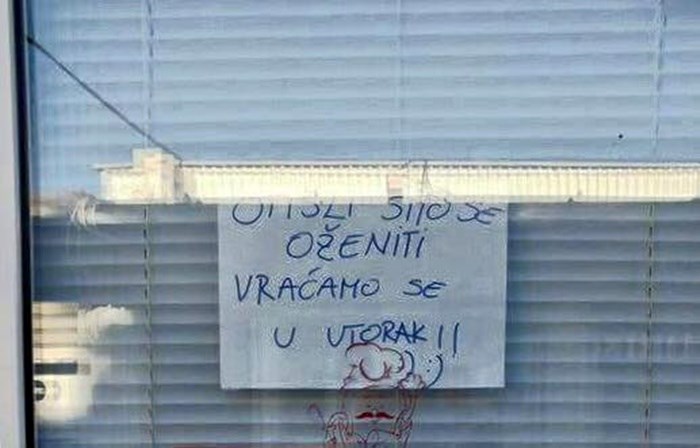 OTIŠLI SMO SE
OŽENITI
VRAĆAMO SE
U UTORAK !!
:)